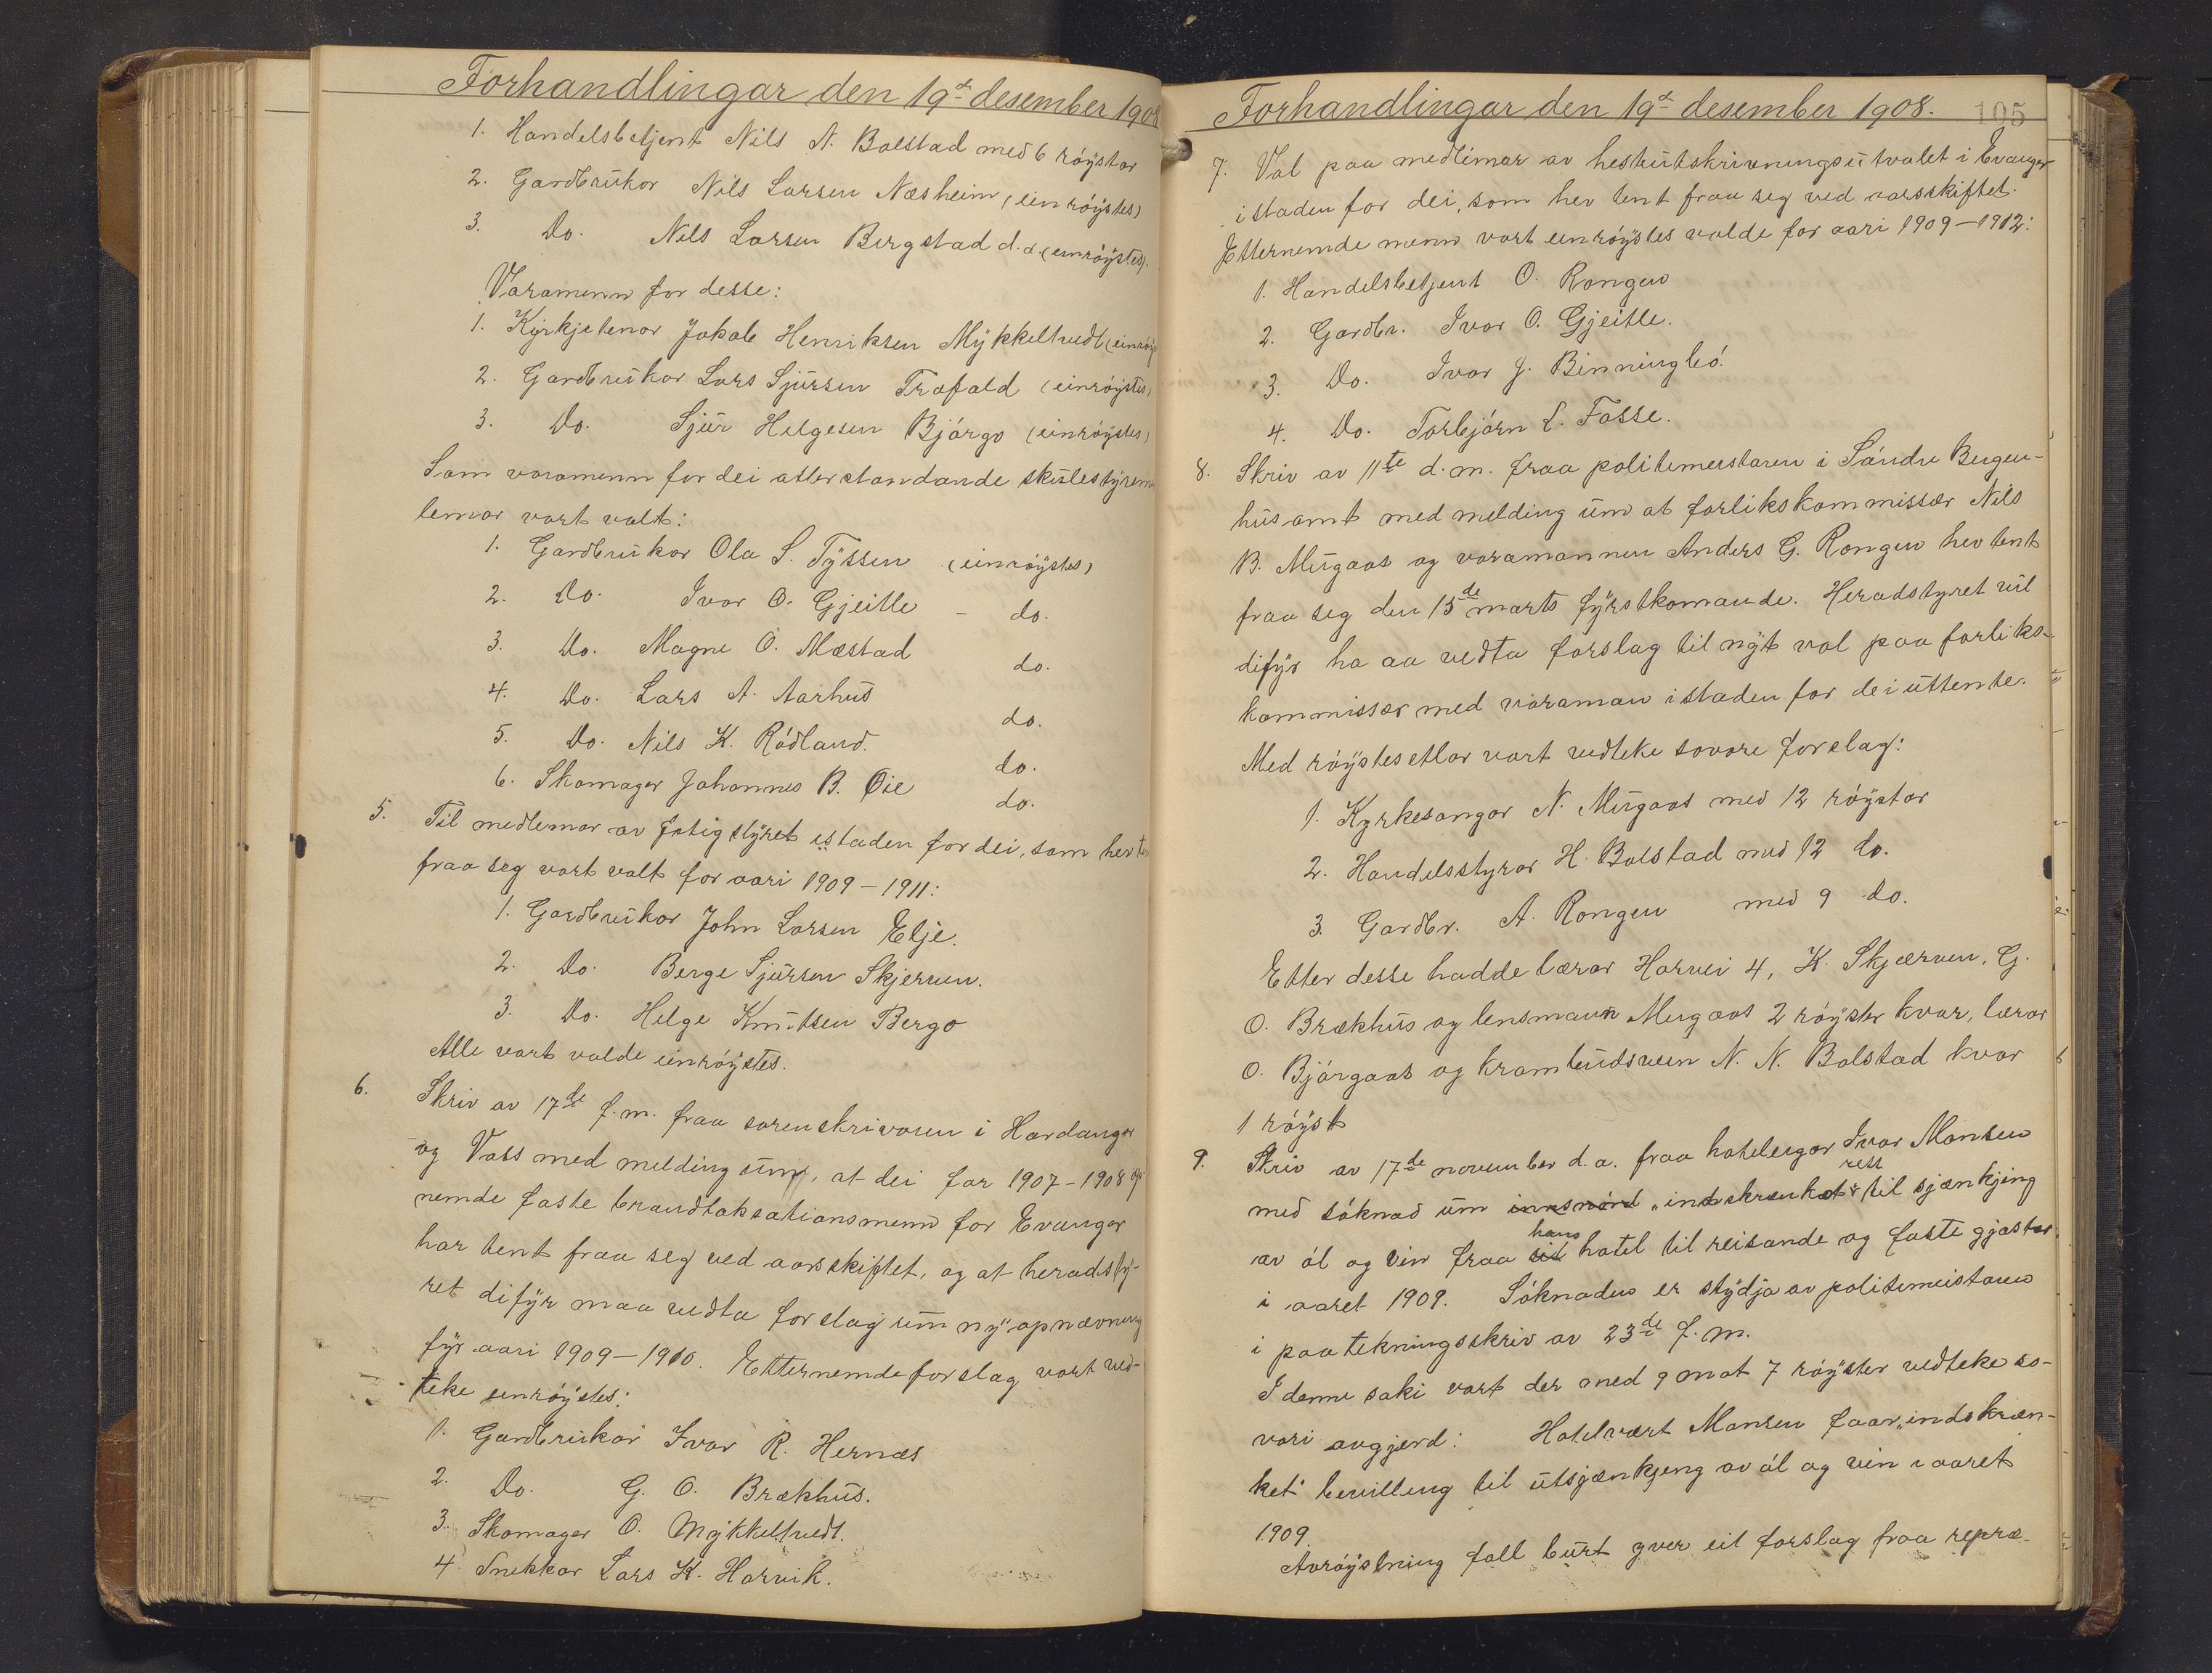 Forhandlingar den 19de desember 1908
1. Handelsbetjent Nils N. Bolstad med 6 röystar
2. Gardbrukar Nils Larsen Næsheim (einröystes)
3. Do. Nils Larsen Bergstad d.a. (einröystes).
Varamenn for desse:
1. Kyrkjetenar Jakob Henriksen Mykkeltvedt (einröy
2. Gardbrukar Lars Sjursen Trafald (einröystes)
3. Do. Sjur Helgesen Bjørgo (einröystes)
Som varamenn for dei atterstandande skulestyrem
lemar vart valt:
1. Gardbrukar Ola S. Tyssen (einröystes)
2. Do. Ivar O. Gjeitle - do.
3. Do. Magne O. Mæstad do.
4. Do. Lars A. Aarhus do.
5. Do. Nils K. Rødland. do.
6. Skomager Johannes B. Øie do.
5. Til medlemar av fatigstyret istaden for dei, som hev t
fraa seg vart valt for aari 1909-1911:
1. Gardbrukar John Larsen Elje.
2. Do. Berge Sjursen Skjerven.
3. Do. Helge Knutsen Bergo
Alle vart valde einröystes.
6. Skriv av 17de f.m. fraa sorenskrivaren i Hardanger
og Vass med melding um, at dei for 1907-1908 op
nemde faste brandtaksationsmenn for Evanger
har tent fraa seg ved aarsskiftet, og at heradsty-
ret difyr maa vedta forslag um ny opnævning
fyr aari 1909-1910. Etternemde forslag vart ved-
teke einröystes:
1. Gardbrukar Ivar R. Hernæs
2. Do. G. O. Brækhus.
3. Skomager O. Mykkeltvedt.
4 Snekkar Lars K. Horvik.
Forhandlingar den 19de desember 1908. 105
7. Val paa medlemar av hestutskrivningsutvalet i Evanger
istaden for dei, som hev tent fraa seg ved aarsskiftet.
Etternemde menn vart einröystes valde for aari 1909-1912:
1. Handelsbetjent O. Rongen
2. Gardbr. Ivar O. Gjeitle.
3. Do. Ivar J. Binningbø.
4. Do. Torbjørn L. Fosse.
8. Skriv av 11te d.m. fraa politemeistaren i Søndre Bergen-
husamt med melding um at forlikskommissær Nils
B. Mugaas og varamannen Anders G. Rongen hev tent
fraa seg den 15de marts fyrstkomande. Heradstyret vil
difyr ha aa vedta forslag til nyt val paa forliks-
kommissær med varaman istaden for dei uttente.
Med röystesetlar vart vedteke sovore forslag:
1. Kyrkesangar N. Mugaas med 12 röystar
2. Handelsstyrar H. Bolstad med 12 do.
3. Gardbr. A. Rongen med 9 do.
Etter desse hadde lærar Horvei 4, K. Skjærven, G.
O. Brækhus og lensmann Mugaas 2 röyster kvar, lærar
O. Bjørgaas og krambudsvein N. N. Bolstad kvar
1 röyst
9. Skriv av 17de november d.a. fraa hotelergar Ivar Monsen
rett
med söknad um "indskrenket" til sjænkjing
hans
av öl og vin fraa sit hotel til reisande og faste gjæstar
i aaret 1909. Söknaden er stydja av politimeistaren
i paatekningsskriv av 23de f.m.
I denne saki vart der med 9 mot 7 röyster vedteke so-
vori avgjerd: Hotelvært Monsen faar "indskræn-
ket" bevilling til utsjænkjeng av öl og vin i aaret
1909.
Avröystning fall burt yver eit forslag fraa repræ-